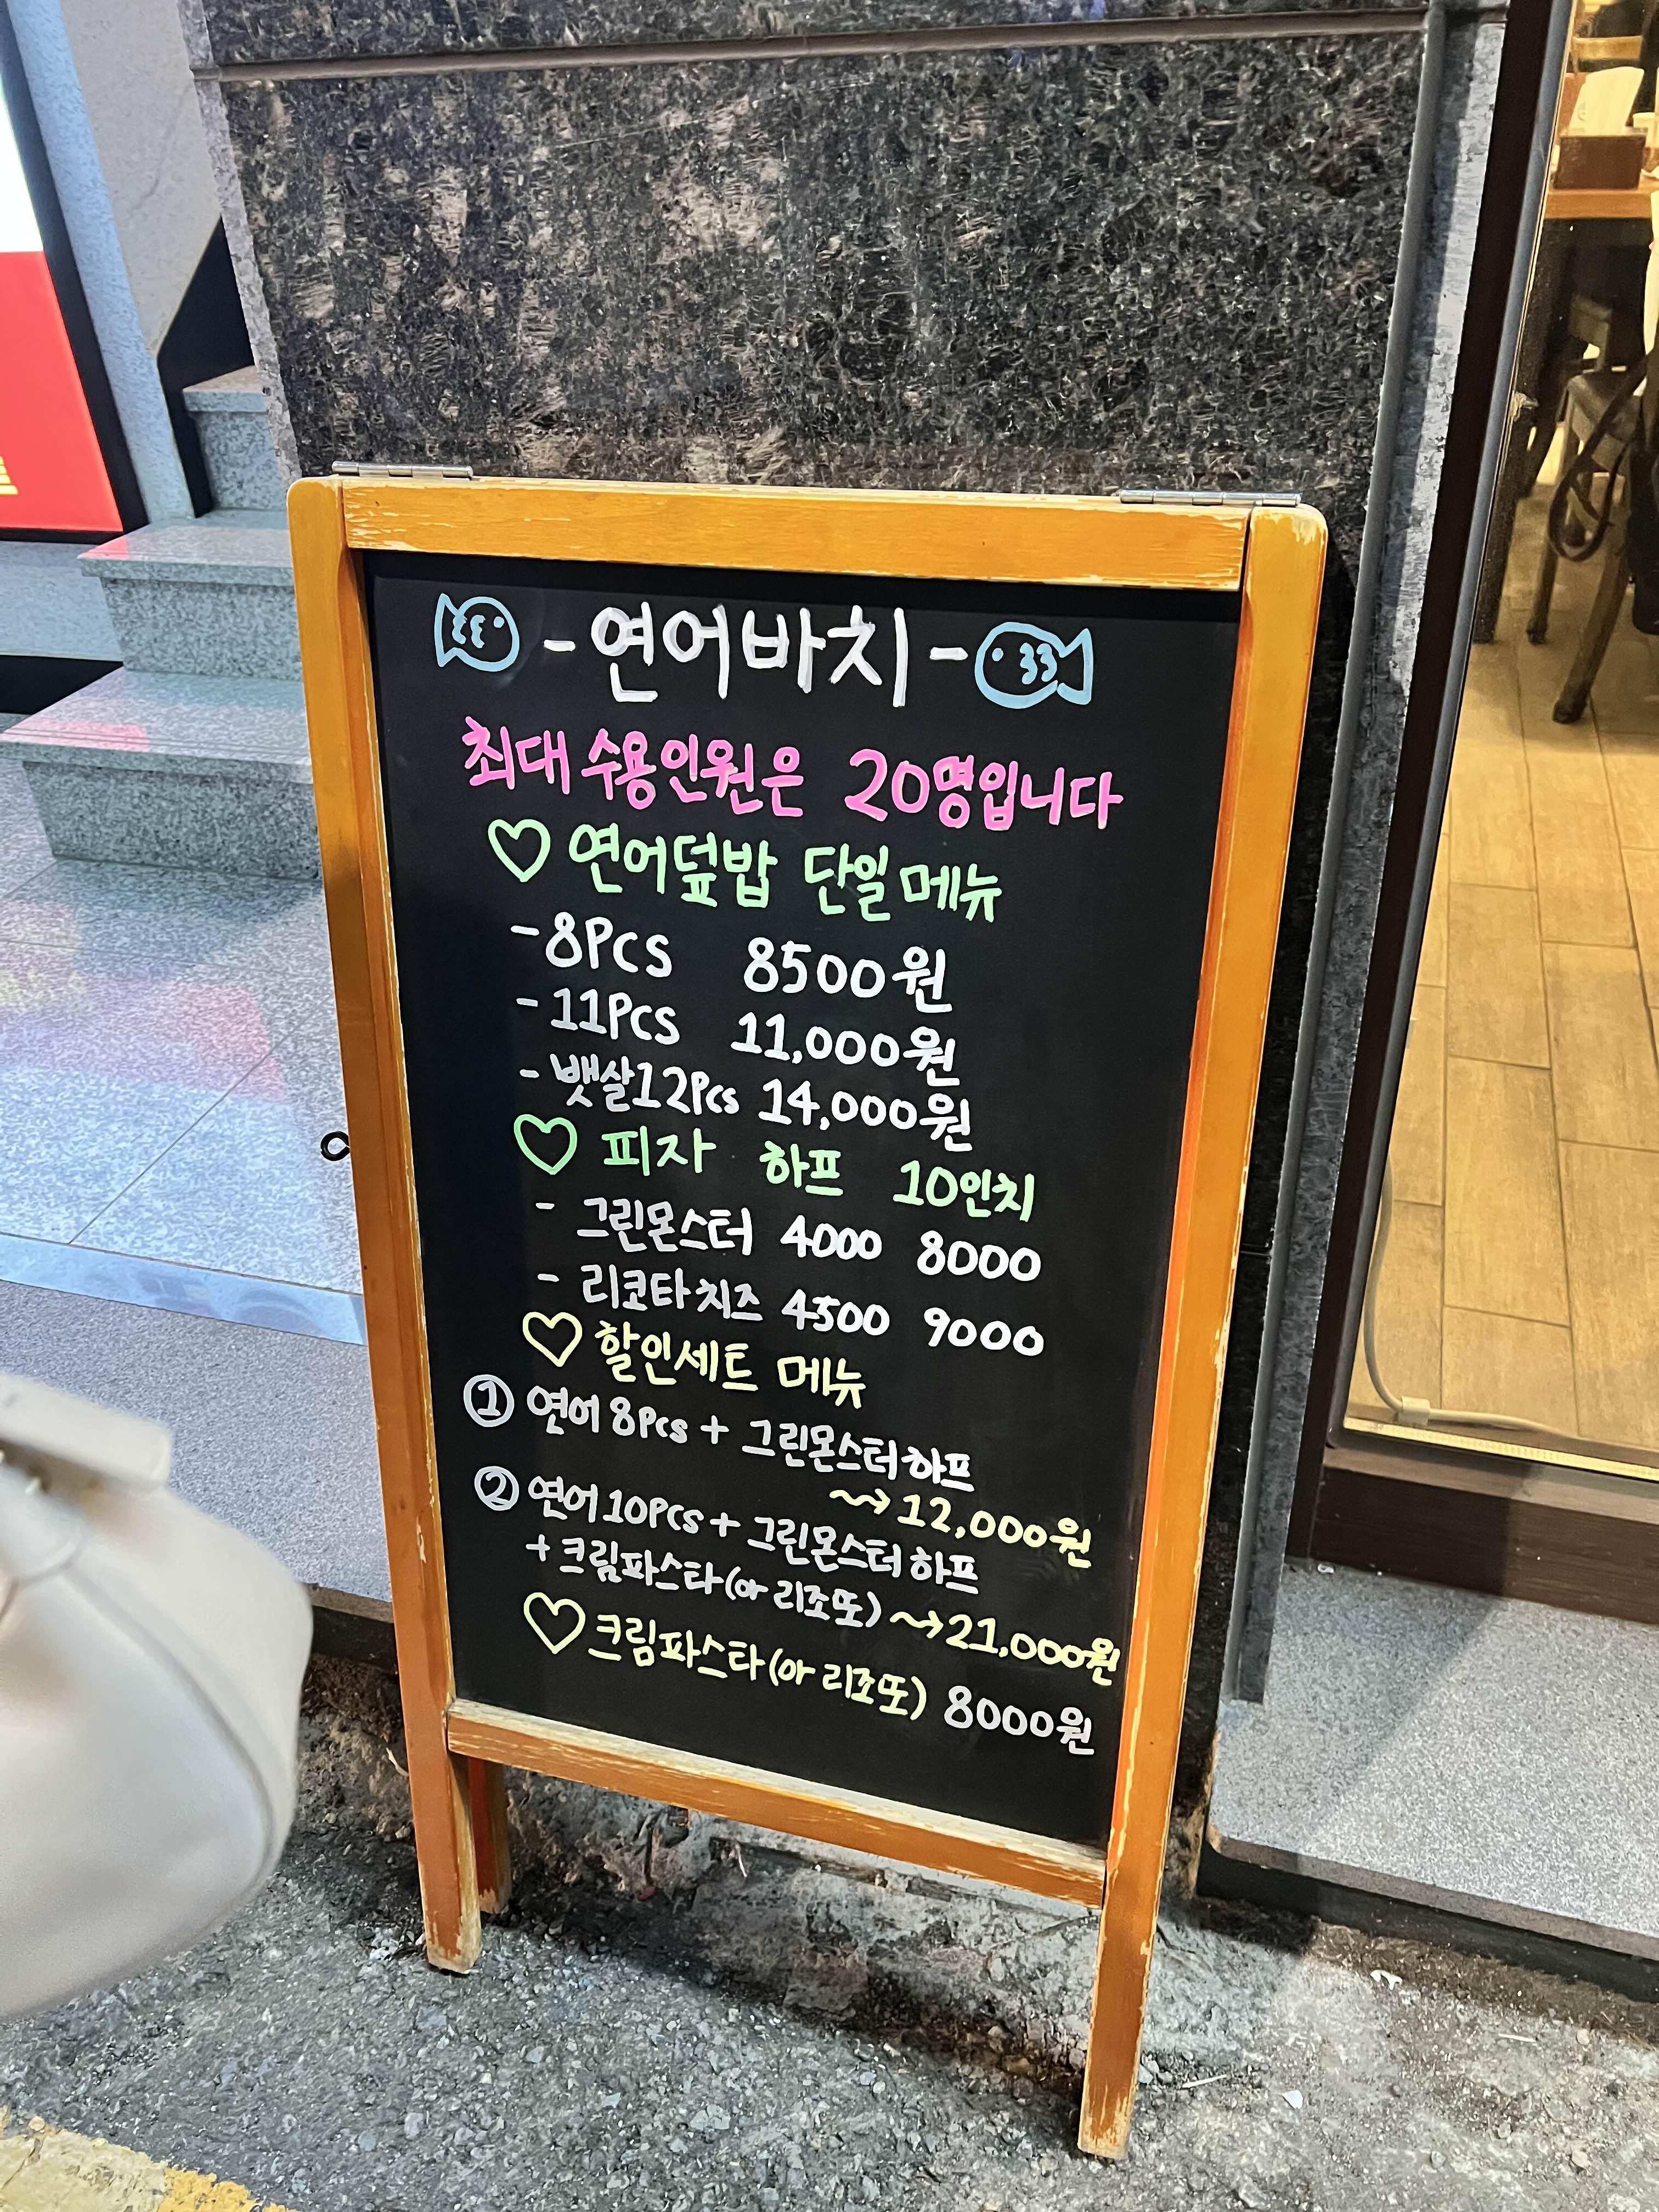 -연어바치-
최대 수용인원은 20명입니다
♡ 연어덮밥 단일메뉴
-8Pcs 8500원
-11Pcs 11,000원
-뱃살12Pcs 14,000원
♡ 피자 하프 10인치
- 그린몬스터 4000 8000
- 리코타치즈 4500 9000
♡ 할인세트 메뉴
① 연어 8Pcs + 그린몬스터하프
~→12,000원
② 연어 10Pcs + 그린몬스터하프
+ 크림파스타(or 리조또) ~→21,000원
♡ 크림파스타(or 리조또) 8000원